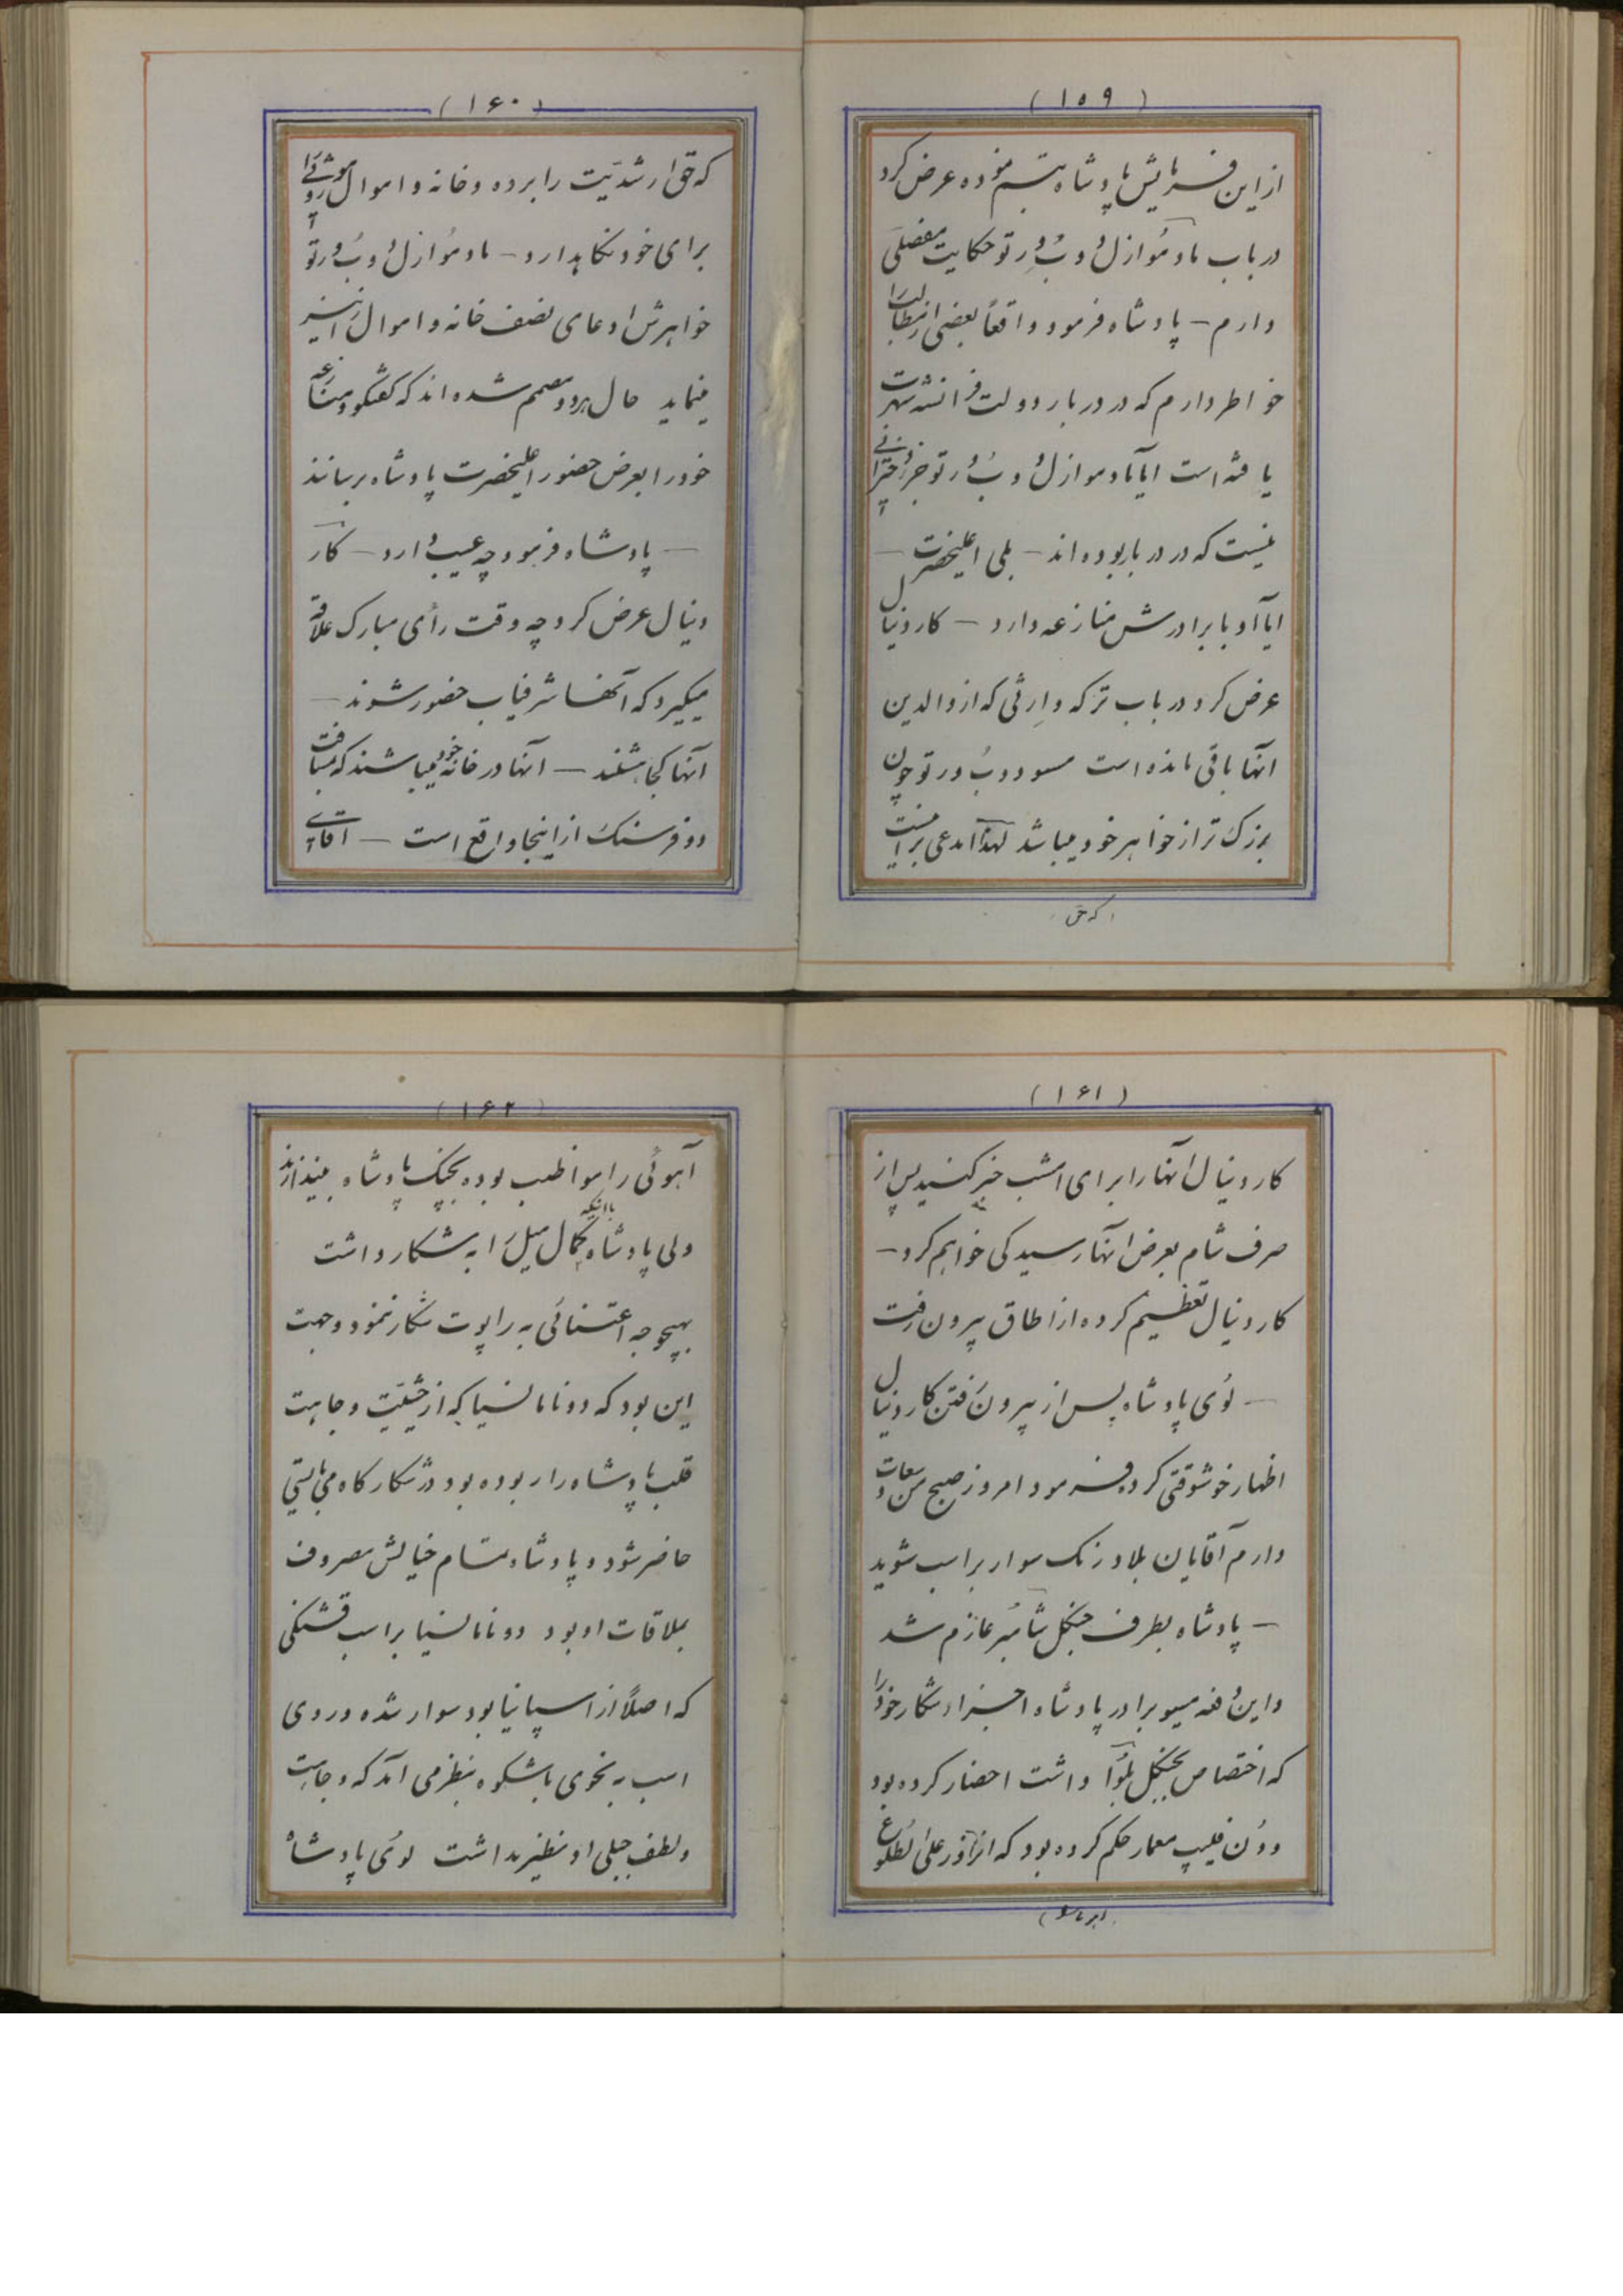 (۱۵۹)
از این فرمایش پادشاه تبسم نموده عرض کرد
در باب مادموازل دوبُورتو حکایت مفصلی
دارم – پادشاه فرمود واقعاً بعضی از مطالب را
خواطر دارم که در دربار دولت فرانسه شهرت
یافته است ایا مادموازل دوبُورتو جزو دخترانی
نیست که در دربار بوده اند – بلی اعلیحضرت –
ایا او با برادرش منازعه دارد – کاردینال
عرض کرد در باب ترکه وارثی که از والدین
آنها باقی مانده است مسیو دوبُورتو چون
بزرک تر از خواهر خود میباشد لهذا مدعی بر اینست
که حق
(۱۶۰)
که حق ارشدیّت را برده و خانه و اموال موروثی را
برای خود نکاهدارد – مادموازل دوبُورتو
خواهرش ادعای نصف خانه و اموال را نیز
مینماید حال هر دو مصمم شده اند که کفتکو و منازعه
خود را بعرض حضور اعلیحضرت پادشاه برسانند
– پادشاه فرمود چه عیب دارد – کار
دینال عرض کرد چه وقت رأی مبارک علاقه
میکیرد که آنها شرفیاب حضور شوند –
آنها کجا هستند – آنها در خانه خود میباشند که بمسافت
دو فرسنک از اینجا واقع است – آقای
(۱۶۱)
کاردینال آنها را برای امشب خبر کنید پس از
صرف شام بعرض آنها رسیدکی خواهم کرد –
کاردینال تعظیم کرده از اطاق بیرون رفت
– لوی پادشاه پس از بیرون رفتن کاردینال
اظهار خوشوقتی کرده فرمود امروز صبح من سعادت
دارم آقایان بلا درنک سوار بر اسب شوید
– پادشاه بطرف جنکل شامبُر عازم شد
و این دفعه مسیو برادر پادشاه اجزاء شکار خود را
که اختصاص بجنکل بلوُآ داشت احضار کرده بود
و دُن فیلیپ معمار حکم کرده بود که از نزدیک
(۱۶۲)
آهوئی را مواظب بوده بچنک پادشاه بیندازند
ولی پادشاه با آنکه کمال میل را به شکار داشت
بهیچوجه اعتنائی به راپوت شکار ننمود و جهت
این بود که دونا مانسیا که از حیثیّت و جاهت
قلب پادشاه را ربوده بود در شکارکاه میبایستی
حاضر شود و پادشاه تمام خیالش مصروف
بملاقات او بود دونا مانسیا بر اسب قشنکی
که اصلاً از اسپانیا بود سوار شده و روی
اسب به نحوی باشکوه بنظر می آمد که وجاهت
و لطف جبلی او نظیر نداشت لوی پادشاه